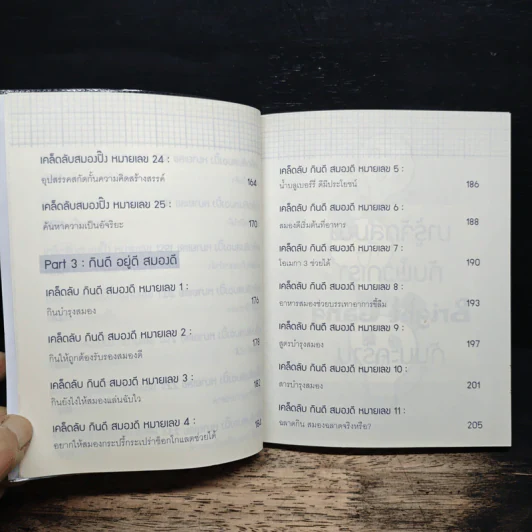 เคล็ดลับสมองปิ๊ง หมายเลข 24 :
อุปสรรคสกัดกั้นความคิดสร้างสรรค์ 164
เคล็ดลับสมองปิ๊ง หมายเลข 25 :
ค้นหาความเป็นอัจริยะ 170
Part 3 : กินดี อยู่ดี สมองดี
เคล็ดลับ กินดี สมองดี หมายเลข 1 :
กินบำรุงสมอง 176
เคล็ดลับ กินดี สมองดี หมายเลข 2 :
กินให้ถูกต้องรับรองสมองดี 178
เคล็ดลับ กินดี สมองดี หมายเลข 3 :
กินยังไงให้สมองแล่นฉับไว 182
เคล็ดลับ กินดี สมองดี หมายเลข 4 :
อยากให้สมองกระปรี้กระเปร่าช็อกโกแลตช่วยได้ 184
เคล็ดลับ กินดี สมองดี หมายเลข 5 :
น้ำบลูเบอร์รี่ ดีมีประโยชน์ 186
เคล็ดลับ กินดี สมองดี หมายเลข 6 :
สมองดีเริ่มต้นที่อาหาร 188
เคล็ดลับ กินดี สมองดี หมายเลข 7 :
โอเมกา 3 ช่วยได้ 190
เคล็ดลับ กินดี สมองดี หมายเลข 8 :
อาหารสมองช่วยบรรเทาอาการขี้ลืม 193
เคล็ดลับ กินดี สมองดี หมายเลข 9 :
สูตรบำรุงสมอง 197
เคล็ดลับ กินดี สมองดี หมายเลข 10 :
สารบำรุงสมอง 201
เคล็ดลับ กินดี สมองดี หมายเลข 11 :
ฉลาดกิน สมองฉลาดจริงหรือ? 205